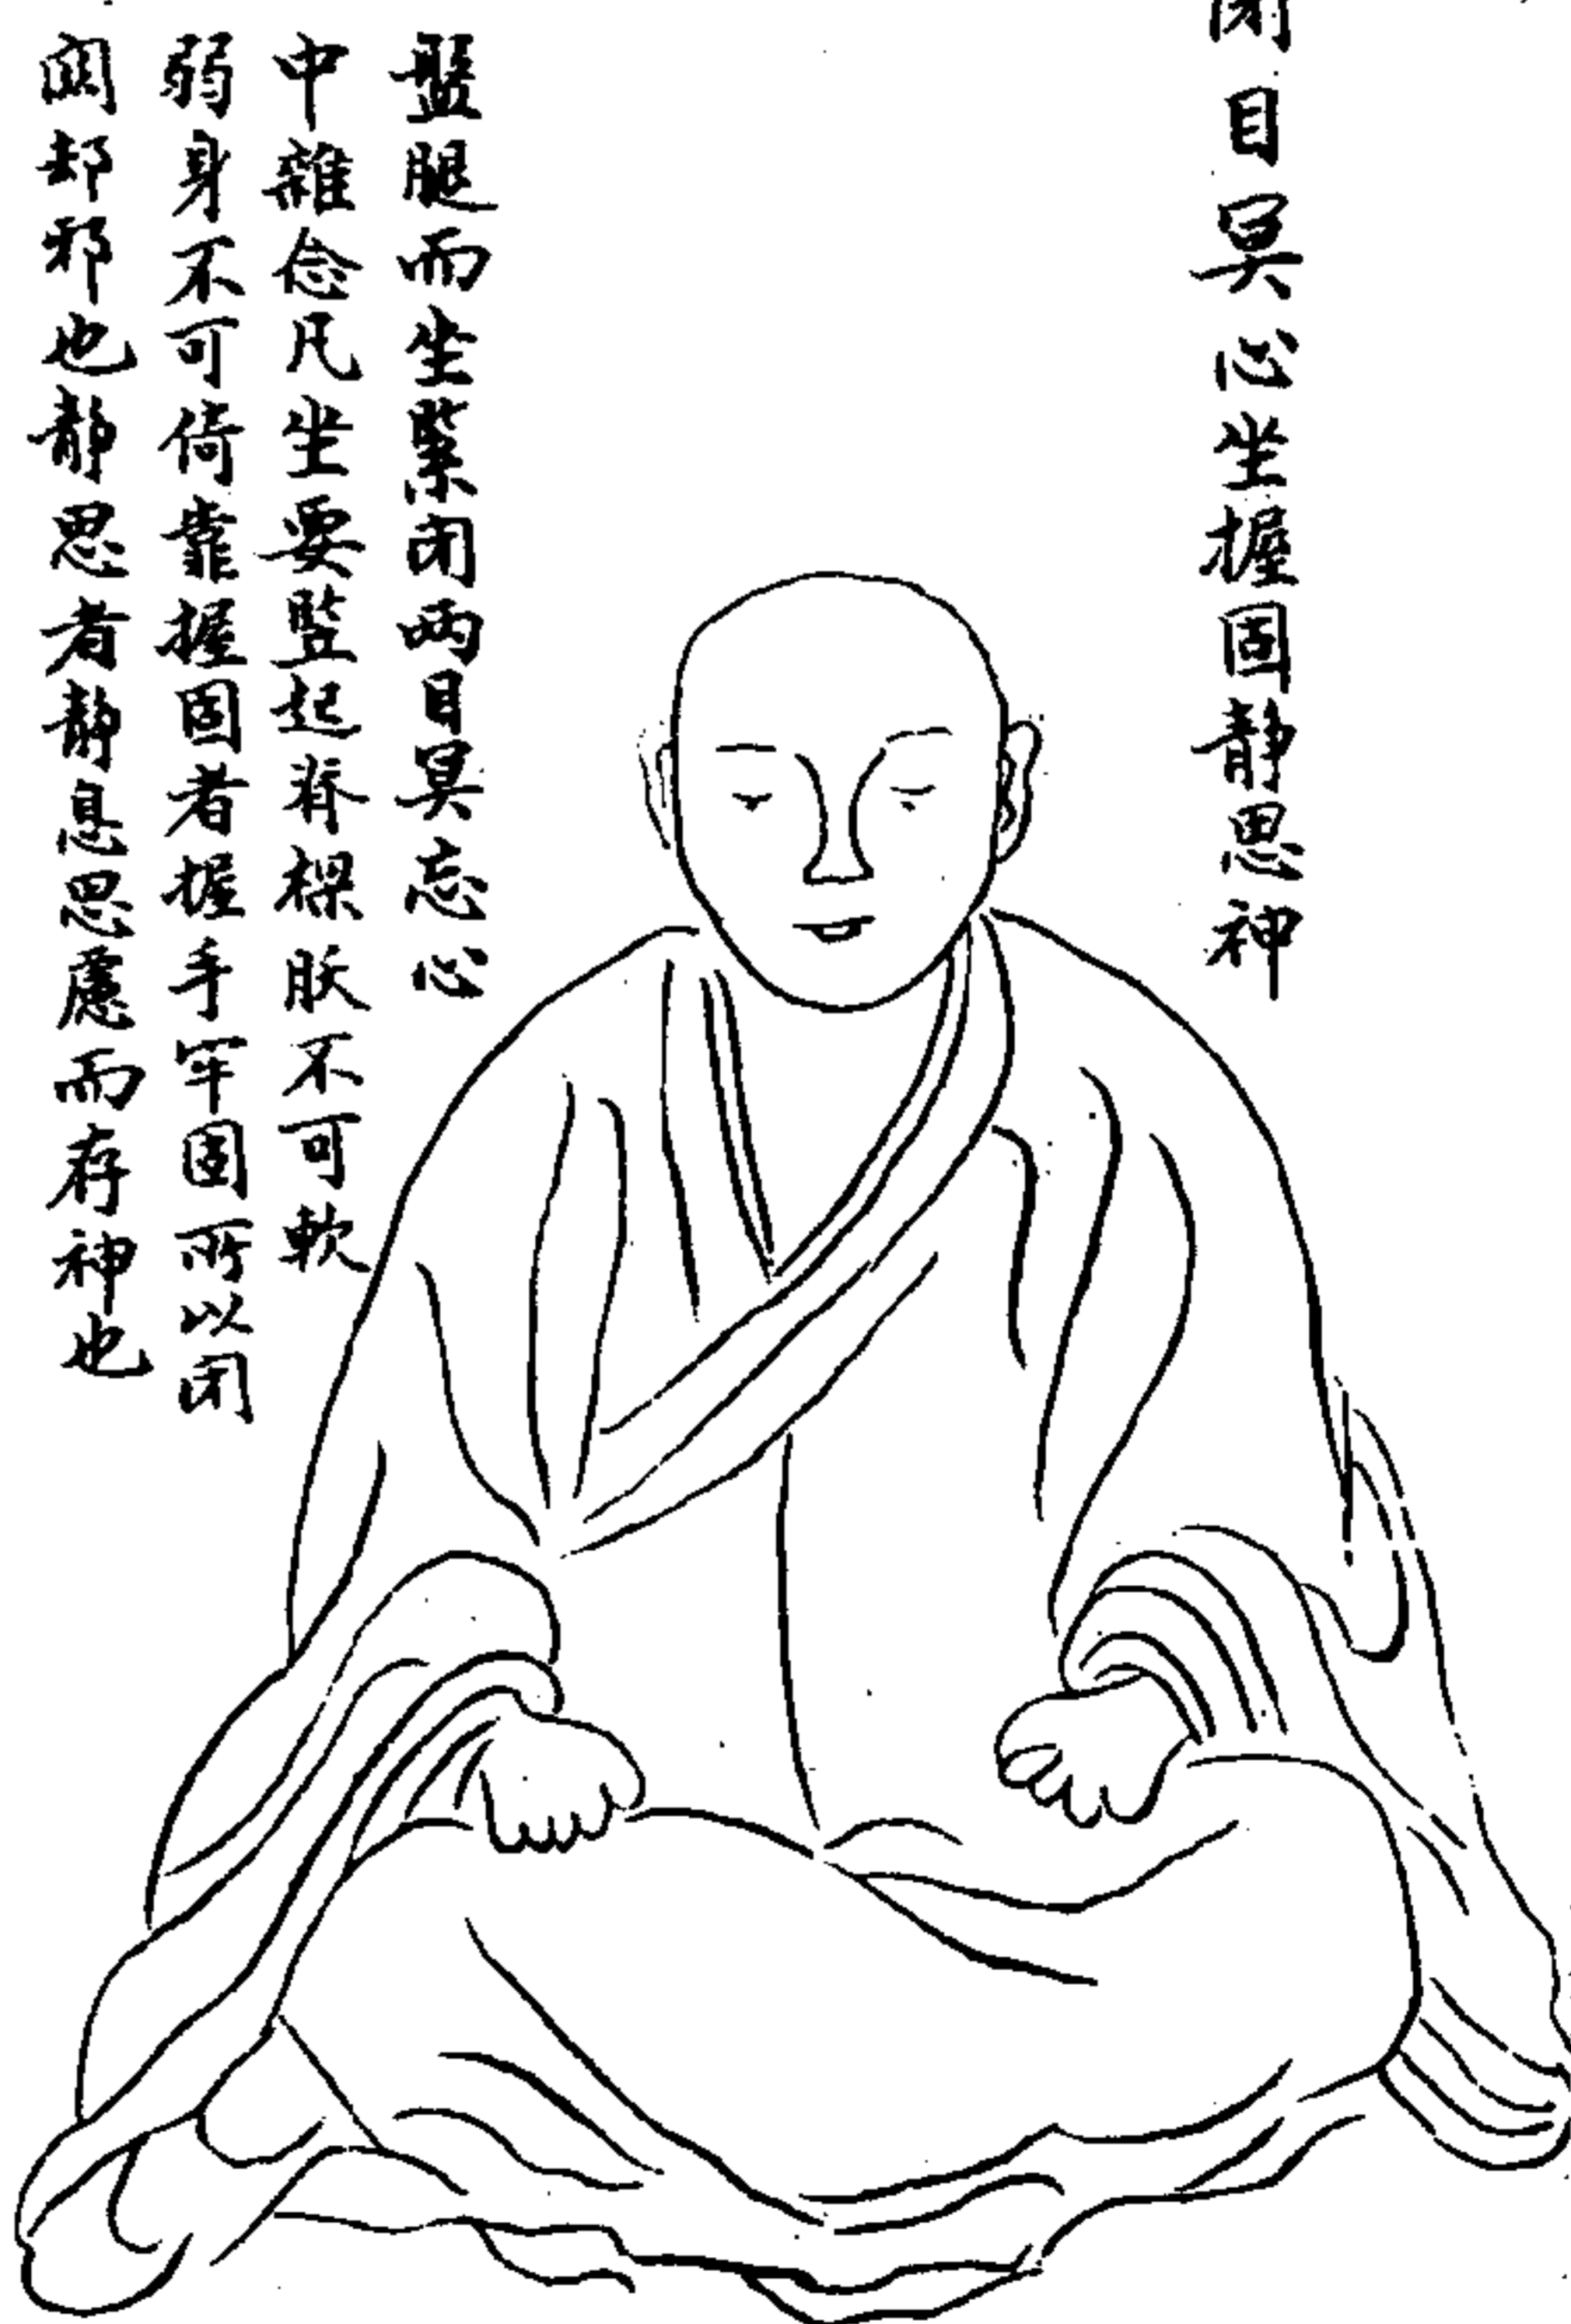 閉目冥心坐握固静思神
盤腿而坐緊闭两目冥忘心
中雜念凡坐要竪起脊樑腰不可軟
弱身不可倚靠握固者握手牢固所以闭
関却邪也静思者静息思慮而存神也